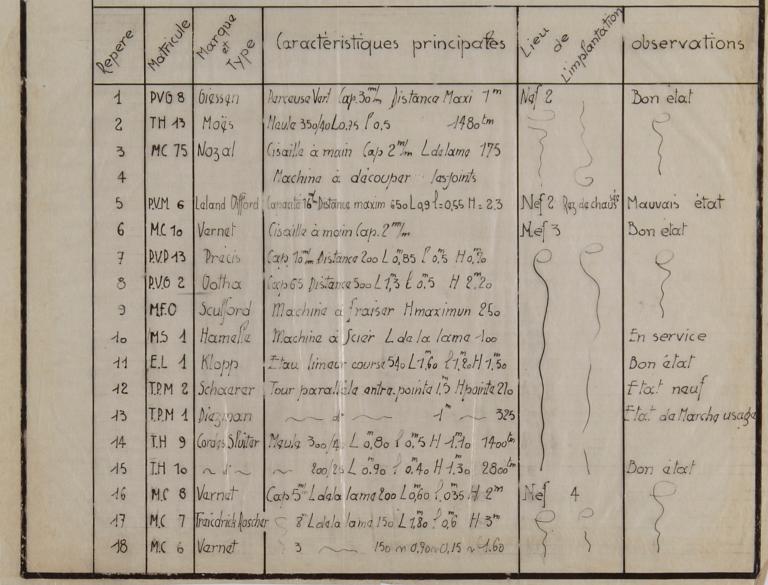 Repere Matricule Marque et Type Caractéristiques principales Lieu de L'implantation observations
1 P.V.G 8 Giessen Perceuse Vert Cap. 30 m/m Distance Maxi 1m Nef 2 Bon état
2 T.H 13 Moës Meule 350/40 L 0,75 l 0,5 1480tm
3 M.C 75 Nozal Cisaille à main Cap 2 m/m L de lame 175
4 Machine à découper les joints
5 P.V.M 6 Leland Capacité 16 m/m Distance maxim 650 L 0,9 l=0,55 H=2.3 Nef 2 Rez de chaus Mauvais état
6 M.C 10 Vernet Cisaille à main Cap. 2 m/m Nef 3 Bon état
7 P.V.D 13 Précis Cap. 10 m/m Distance 200 L 0,85 l 0,5 H 0,70
8 P.V.G 2 Gotha Cap 65 Distance 500 L 1,3 l 0,5 H 2m20
9 M.F.O Sculfford Machine à fraiser H maximun 250
10 M.S 1 Hamelle Machine à Scier L de la lame 400 En service
11 E.L 1 Klopp Etau limeur course 540 L 1m60 l 1m20 H 1m50 Bon état
12 T.P.M 2 Schaerer Tour parallèle entre. pointe 1,5 H pointe 210 Etat neuf
13 T.P.M 1 ~ d° ~ 1m ~ 325 Etat de Marche usagé
14 T.H 9 Cordes Sluiter Meule 300/40 L 0m80 l 0m5 H 1m10 1400tm
15 T.H 10 ~ d° ~ ~ 200/25 L 0m90 l 0m40 H 1m30 2800tm Bon état
16 M.C 8 Vernet Cap 5 m/m L de la lame 200 L 0m60 l 0m35 H 2m Nef 4
17 M.C 7 8 L de la lame 150 L 1m80 l 0m6 H 3m
18 M.C 6 Vernet 3 ~ 150 ~ 0,90 ~ 0,15 ~ 1.60